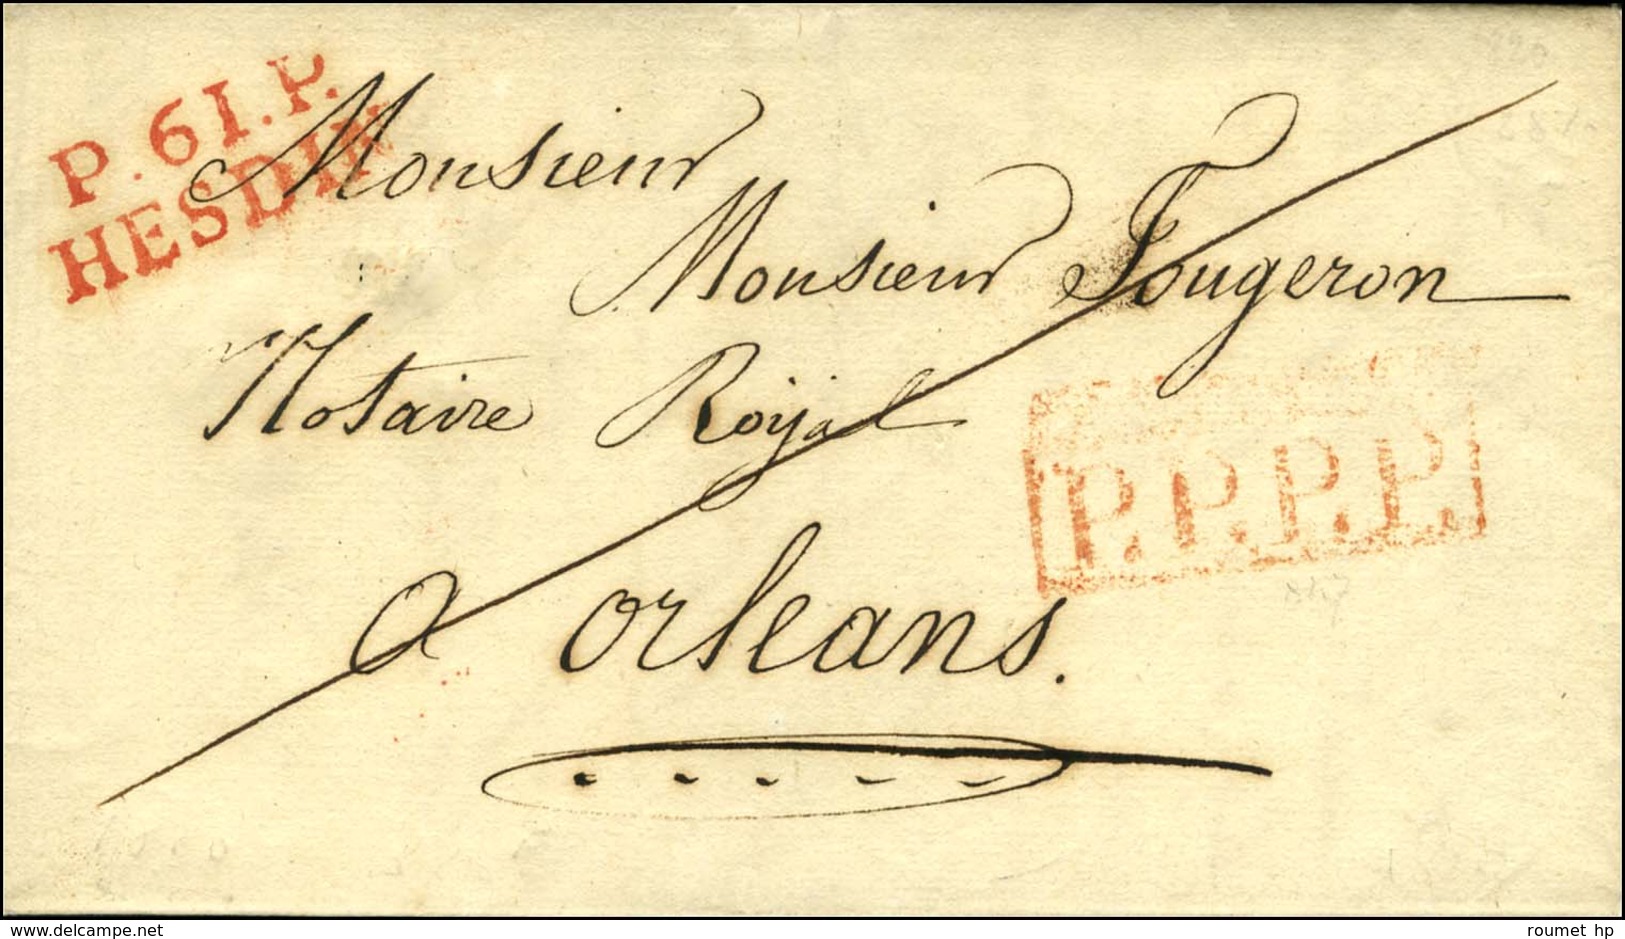 P.61.P.
HESDIN
Monsieur
Monsieur Fougeron
Notaire Royal
a orleans.
P.P.P.P.
www.delcampe.net
roumet hp